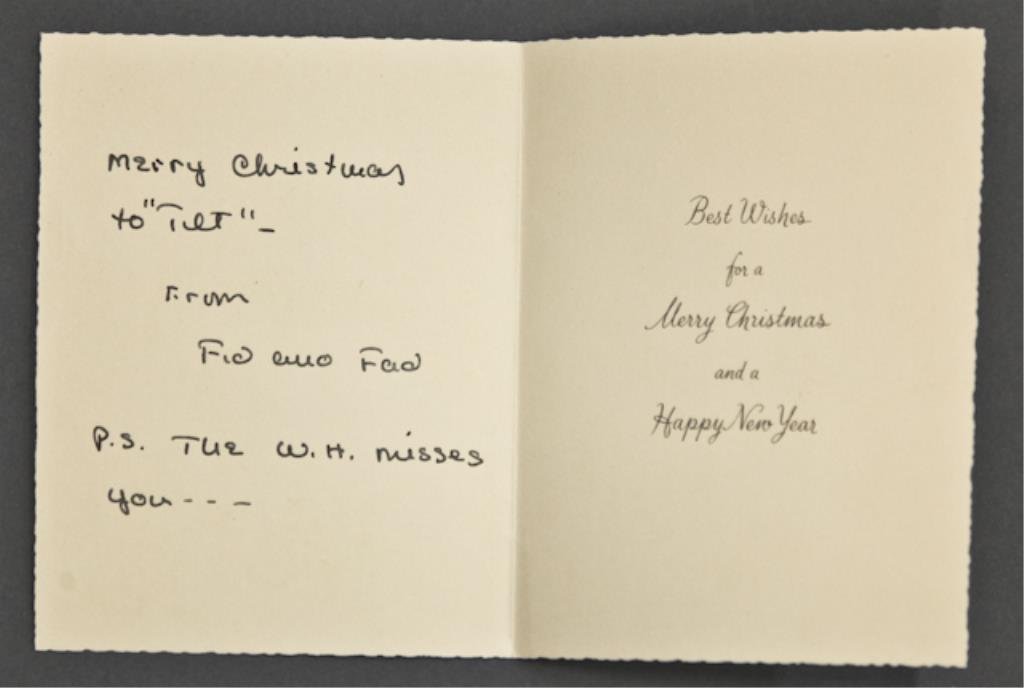 Merry Christmas
to "Tilt" -
From
Fid and Fad
P.S. The W.H. misses
you - - -
Best Wishes
for a
Merry Christmas
and a
Happy New Year